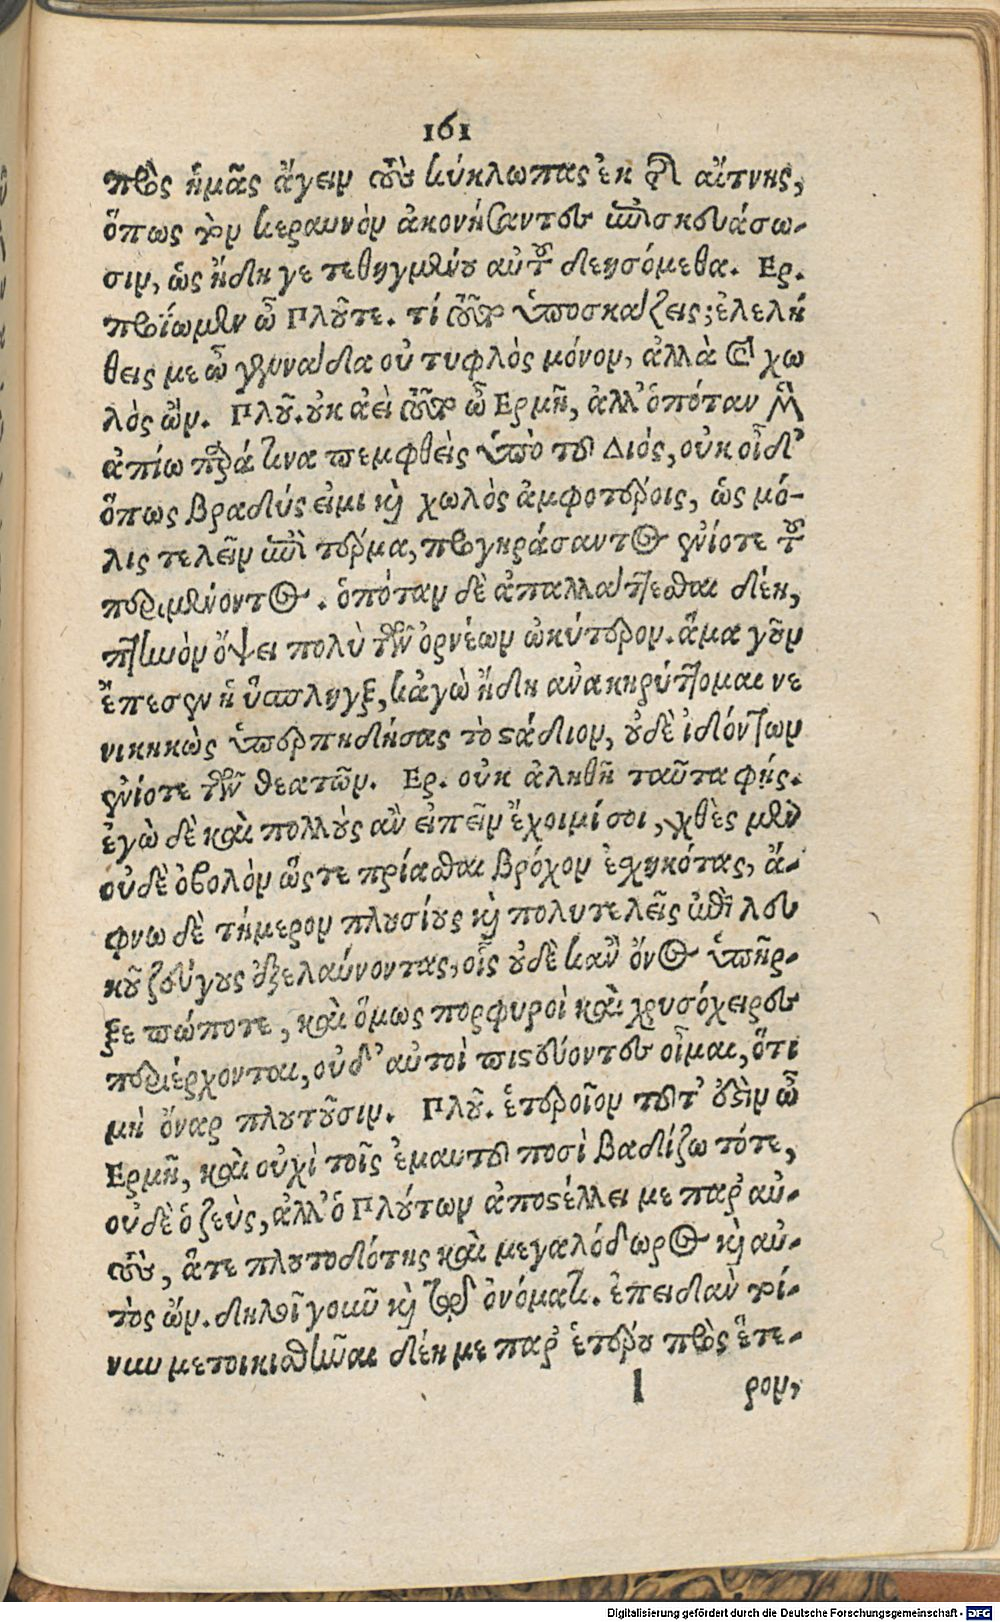 161
πρὸς ἡμᾶς ἄγειν τοὺς κύκλωπας ἐκ τῆς αἴτνης,
ὅπως τὸν κεραυνὸν ἀκονήσαντες ἐπισκευάσω-
σιν, ὡς ἤδη γε τεθηγμένου αὐτοῦ δεησόμεθα. Ερ.
προΐωμεν ὦ Πλοῦτε. τί τοῦτο ὑποσκάζεις; ἐλελή
θεις με ὦ γεννάδα οὐ τυφλὸς μόνον, ἀλλὰ καὶ χω
λὸς ὤν. Πλοῦ. οὐκ ἀεὶ τοῦτο ὦ Ερμῆ, ἀλλ' ὁπόταν μὲν
ἀπίω πρός τινα πεμφθεὶς ὑπὸ τοῦ Διός, οὐκ οἶδ'
ὅπως βραδύς εἰμι καὶ χωλὸς ἀμφοτέροις, ὡς μό-
λις τελεῖν ἐπὶ τέρμα, προγηράσαντος ἐνίοτε τοῦ
περιμένοντος. ὁπόταν δὲ ἀπαλλάττεσθαι δέῃ,
πτηνὸν ὄψει πολὺ τῶν ὀρνέων ὠκύτερον. ἅμα γοῦν
ἔπεσεν ἡ ὕσπληγξ, κἀγὼ ἤδη ἀνακηρύττομαι νε
νικηκὼς ὑπερπηδήσας τὸ στάδιον, οὐδὲ ἰδόντων
ἐνίοτε τῶν θεατῶν. Ερ. οὐκ ἀληθῆ ταῦτα φῄς.
ἐγὼ δὲ καὶ πολλοὺς ἂν εἰπεῖν ἔχοιμί σοι, χθὲς μὲν
οὐδὲ ὀβολὸν ὥστε πρίασθαι βρόχον ἐσχηκότας, ἄ-
φνω δὲ τήμερον πλουσίους καὶ πολυτελεῖς ἐπὶ λευ
κοῦ ζεύγους ἐξελαύνοντας, οἷς οὐδὲ κἂν ὄνος ὑπῆρ-
ξε πώποτε, καὶ ὅμως πορφυροὶ καὶ χρυσόχειρες
περιέρχονται, οὐδ' αὐτοὶ πιστεύοντες οἶμαι, ὅτι
μὴ ὄναρ πλουτοῦσιν. Πλοῦ. ἑτεροῖον τοῦτ' ἐστὶν ὦ
Ερμῆ, καὶ οὐχὶ τοῖς ἐμαυτοῦ ποσὶ βαδίζω τότε,
οὐδὲ ὁ ζεὺς, ἀλλ' ὁ Πλούτων ἀποστέλλει με παρ' αὐ-
τοὺς, ἅτε πλουτοδότης καὶ μεγαλόδωρος καὶ αὐ-
τὸς ὤν. δηλοῖ γοῦν καὶ τῷ ὀνόματι. ἐπειδὰν τοί-
νυν μετοικισθῆναι δέῃ με παρ' ἑτέρου πρὸς ἕτε-
l ρον,
Digitalisierung gefördert durch die Deutsche Forschungsgemeinschaft - DFG